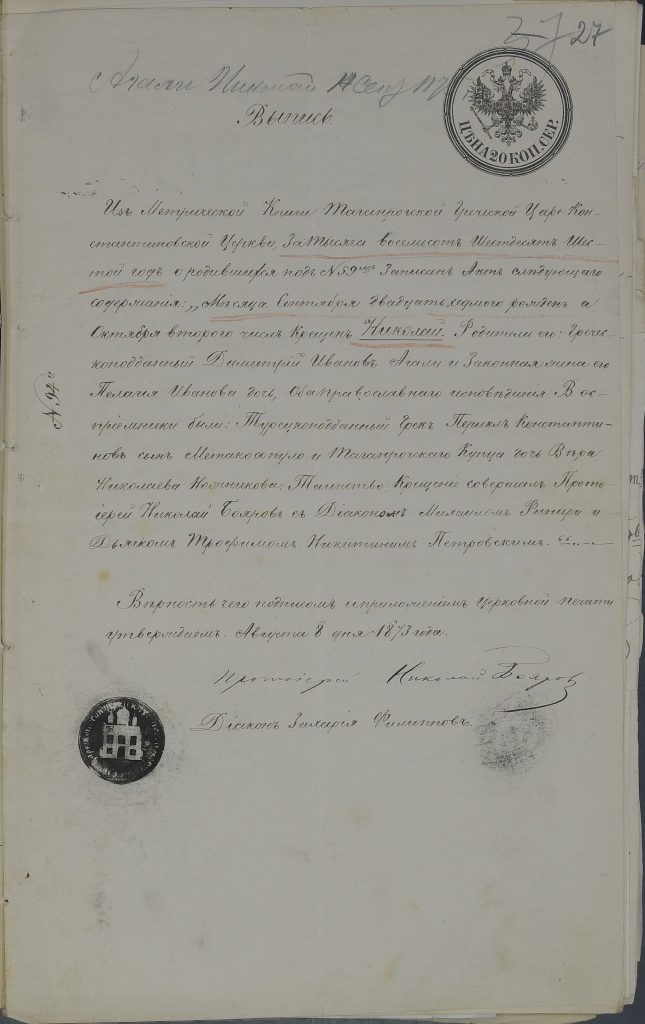 27
Агали Николай
Выпись
ЦѢНА 20 КОП. СЕР.
Изъ Метрической Книги Таганрогской Греческой Царе-Кон-
стантиновской Церкви, За тысяча восемьсотъ Шестдесятъ Шес-
той годъ о родившихся подъ № 59мъ Записанъ Актъ слѣдующаго
содержанія: „Мѣсяца Сентября двадцать седмого рожденъ а
Октября второго числъ Крещенъ Николай. Родители его: Гречес-
коподданный Димитрій Ивановъ Агали и Законная жена его
Пелагія Иванова дочь, оба православнаго исповѣданія. Вос-
пріемники были: Турецкоподданный Грекъ Периклъ Константи-
новъ сынъ Метакосопуло и Таганрогскаго Купца дочь Вѣра
Николаева Кожникова; Таинство Крещенія совершалъ Прото-
іерей Николай Бояровъ съ Діакономъ Михаиломъ и
Дьячкомъ Трофимомъ Никитинымъ Петровскимъ.
№ 94й
Вѣрность чего подписомъ и приложеніемъ церковной печати
утверждаемъ. Августа 8 дня 1873 года.
Протоіерей Николай Бояровъ
Діаконъ Захарія Филипповъ.